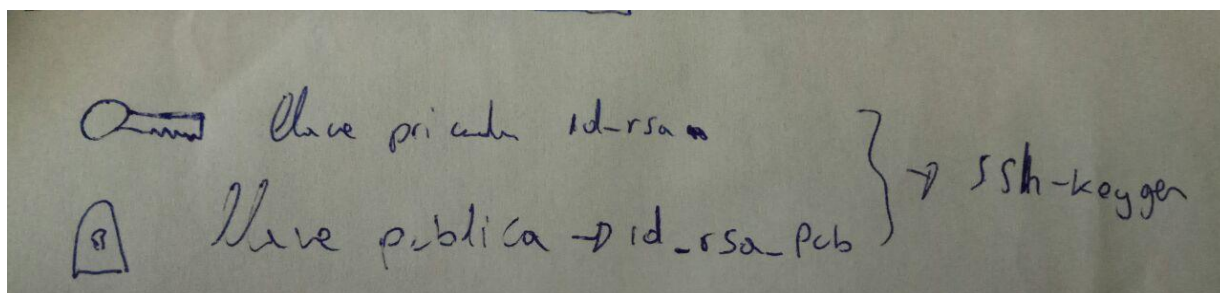 Llave privada id_rsa
Llave publica → id_rsa_pub
→ ssh-keygen